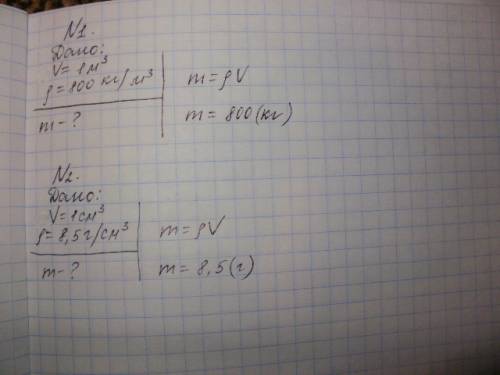 N1.
Дано:
V = 1 м³
ρ = 800 кг/м³
m = ρV
m - ?
m = 800 (кг)
N2.
Дано:
V = 1 см³
ρ = 8,5 г/см³
m = ρV
m - ?
m = 8,5 (г)